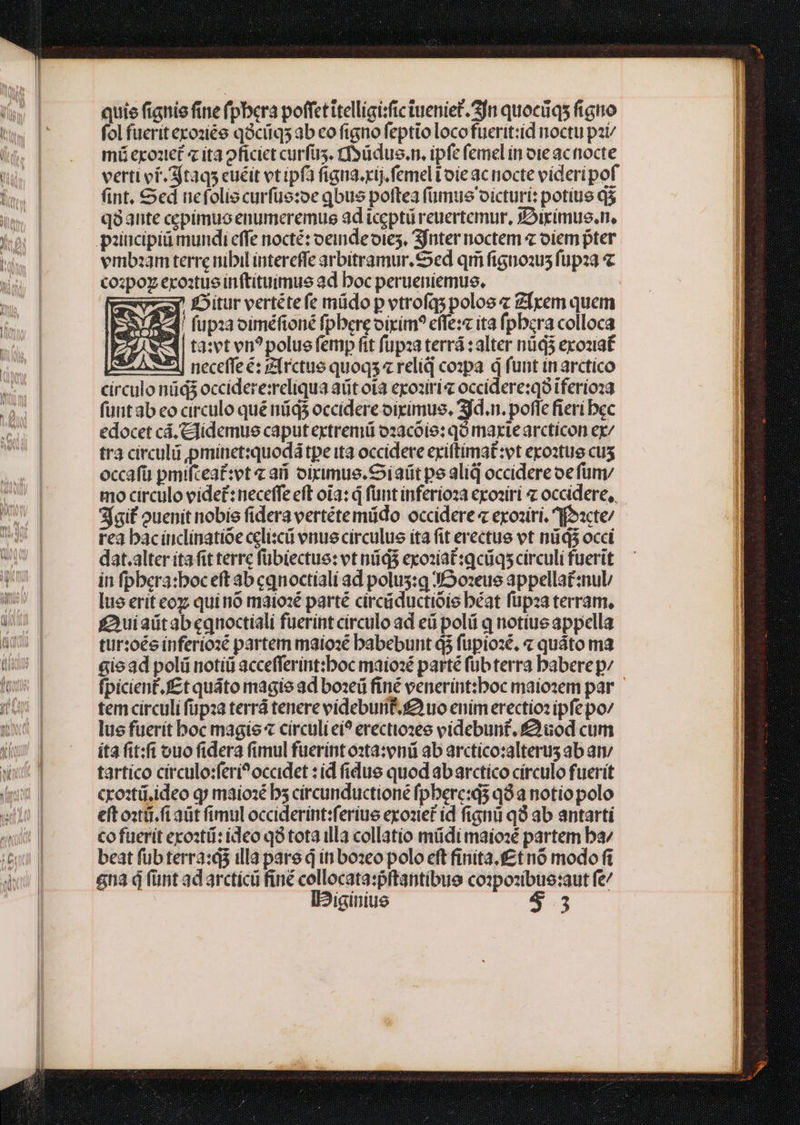 quis signis sine sphera posset ītelligi:sic īueniet᷑. In quocūqꝫ signo
sol fuerit exoriēs qđcūqꝫ ab eo signo septīo loco fuerit:id noctu pri/
mū exoriet᷑ ⁊ ita ↄficiet cursuꝫ. Mūdus.n. ipse semel in die ac nocte
verti vr̄. Itaqꝫ euēit vt ipsa signa.xij. semel ī die ac nocte videri pos
sint. Sed ne solis cursus:de qbus postea sumus dicturi: potius qꝫ
qđ ante cepimus enumeremus ad īceptū reuertemur. Diximus.n.
principiū mundi esse noctē: deinde dieꝫ. Inter noctem ⁊ diem p̄ter
vmbram terre nihil interesse arbitramur. Sed qm̄ signoruꝫ supra ⁊
corpoꝝ exortus instituimus ad hoc perueniemus.
Ditur vertēte se mūdo p vtrosqꝫ polos ⁊ Axem quem
supra dimēsionē sphere diximꝰ esse:⁊ ita sphera colloca
ta:vt vnꝰ polus semp sit supra terrā : alter nūqꝫ exoriat᷑
necesse ē: Arctus quoqꝫ ⁊ reliq̄ corpa q̄ sunt in arctico
circulo nūqꝫ occidere:reliqua aūt oīa exoriri ⁊ occidere:qđ īferiora
sunt ab eo circulo quē nūqꝫ occidere diximus. Id.n. posse fieri hec
edocet cā. Uidemus caput extremū dracōis: qđ maxīe arcticon ex/
tra circulū ꝓminet:quodā tpe ita occidere existimat᷑:vt exortus cuꝫ
occasu pmisceat᷑:vt ⁊ an̄ diximus. Si aūt pe aliq̄ occidere de sum/
mo circulo videt᷑: necesse est oīa: q̄ sunt inferiora exoriri ⁊ occidere.
Igit᷑ ↄuenit nobis sidera vertēte mūdo occidere ⁊ exoriri. Precte/
rea hac inclinatiōe celi:cū vnus circulus ita sit erectus vt nūqꝫ occi
dat.alter ita sit terre subiectus: vt nūqꝫ exoriat᷑:qcūqꝫ circuli fuerīt
in sphera:hoc est ab eqnoctiali ad poluꝫ:q Boreus appellat᷑:nul/
lus erit eoꝝ qui nō maiorē partē circūductiōis hēat supra terram.
Qui aūt ab eqnoctiali fuerint circulo ad eū polū q notius appella
tur:oēs inferiorē partem maiorē habebunt qꝫ supiorē. ⁊ quāto ma
gis ad polū notiū accesserint:hoc maiorē partē sub terra habere p/
spicient᷑. Et quāto magis ad boreū finē venerint:hoc maiorem par
tem circuli supra terrā tenere videbunt᷑. Quo enim erectior ipse po/
lus fuerit hoc magis ⁊ circuli eiꝰ erectiores videbunt᷑. Quod cum
ita sit:si duo sidera simul fuerint orta:vnū ab arctico:alteruꝫ ab an/
tartico circulo:seriꝰ occidet : id sidus quod ab arctico circulo fuerit
exortū.ideo qꝙ maiorē hꝫ circunductionē sphere:qꝫ qđ a notio polo
est ortū.si aūt simul occiderint:serius exoriet᷑ id signū qđ ab antarti
co fuerit exortū: ideo qđ tota illa collatio mūdi maiorē partem ha/
beat sub terra:qꝫ illa pars q̄ in boreo polo est finita. Et nō modo si
gna q̄ sunt ad arcticū finē collocata:p̄stantibus corporibus:aut se/
Higinius $ 3